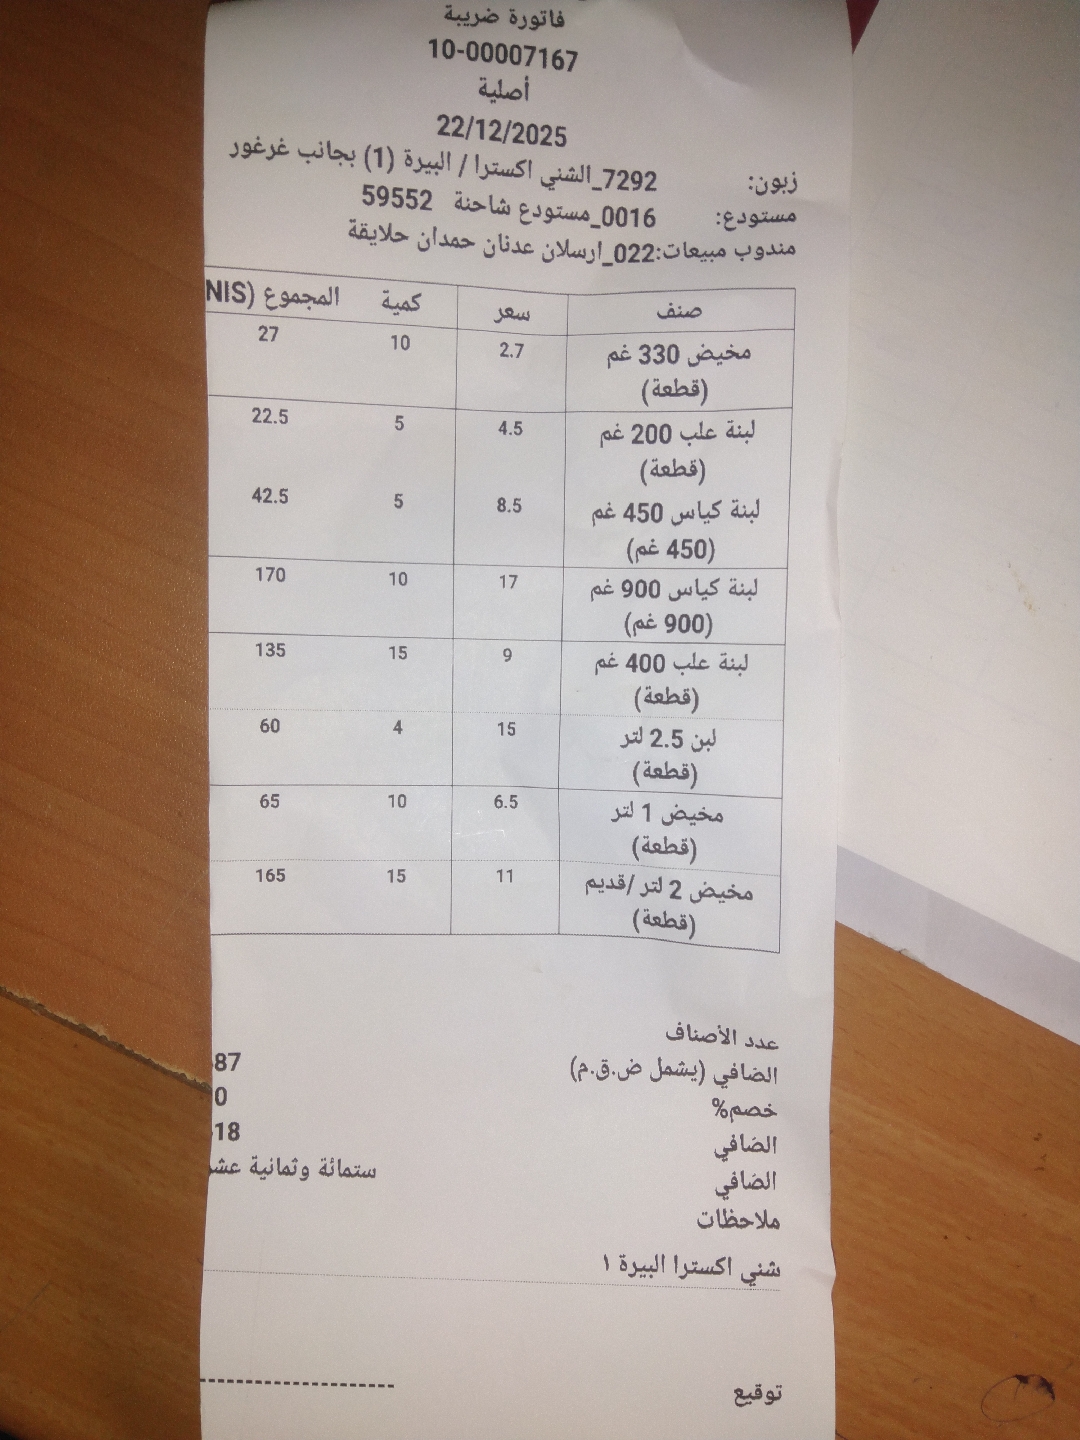 فاتورة ضريبة
10-00007167
أصلية
22/12/2025
زبون: 7292_الشني اكسترا / البيرة (1) بجانب غرغور
مستودع: 0016_مستودع شاحنة 59552
مندوب مبيعات:022_ارسلان عدنان حمدان حلايقة
صنف سعر كمية المجموع (NIS
مخيض 330 غم 2.7 10 27
(قطعة)
لبنة علب 200 غم 4.5 5 22.5
(قطعة)
لبنة كياس 450 غم 8.5 5 42.5
(450 غم)
لبنة كياس 900 غم 17 10 170
(900 غم)
لبنة علب 400 غم 9 15 135
(قطعة)
لبن 2.5 لتر 15 4 60
(قطعة)
مخيض 1 لتر 6.5 10 65
(قطعة)
مخيض 2 لتر /قديم 11 15 165
(قطعة)
عدد الأصناف
الضافي (يشمل ض.ق.م) 87
خصم% 0
الضافي 18
الضافي ستمائة وثمانية عشر
ملاحظات
شني اكسترا البيرة ١
توقيع